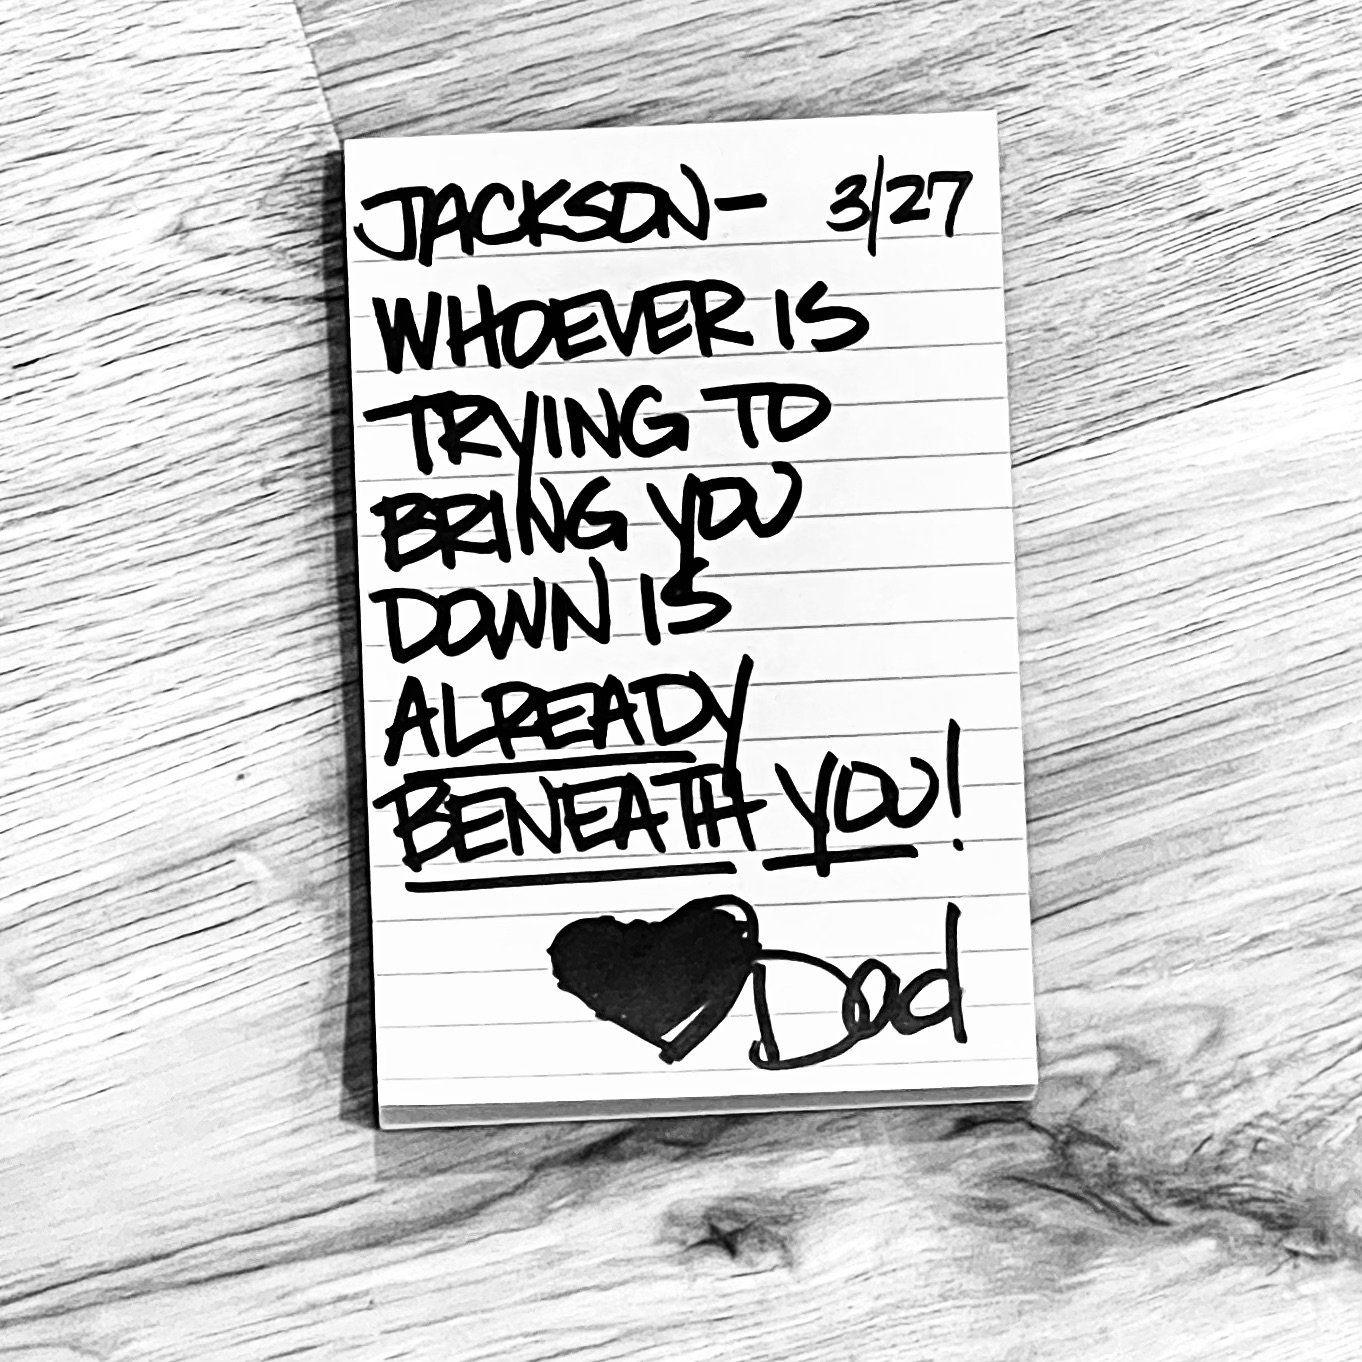 JACKSON- 3/27
WHOEVER IS
TRYING TO
BRING YOU
DOWN IS
ALREADY
BENEATH YOU!
Dad